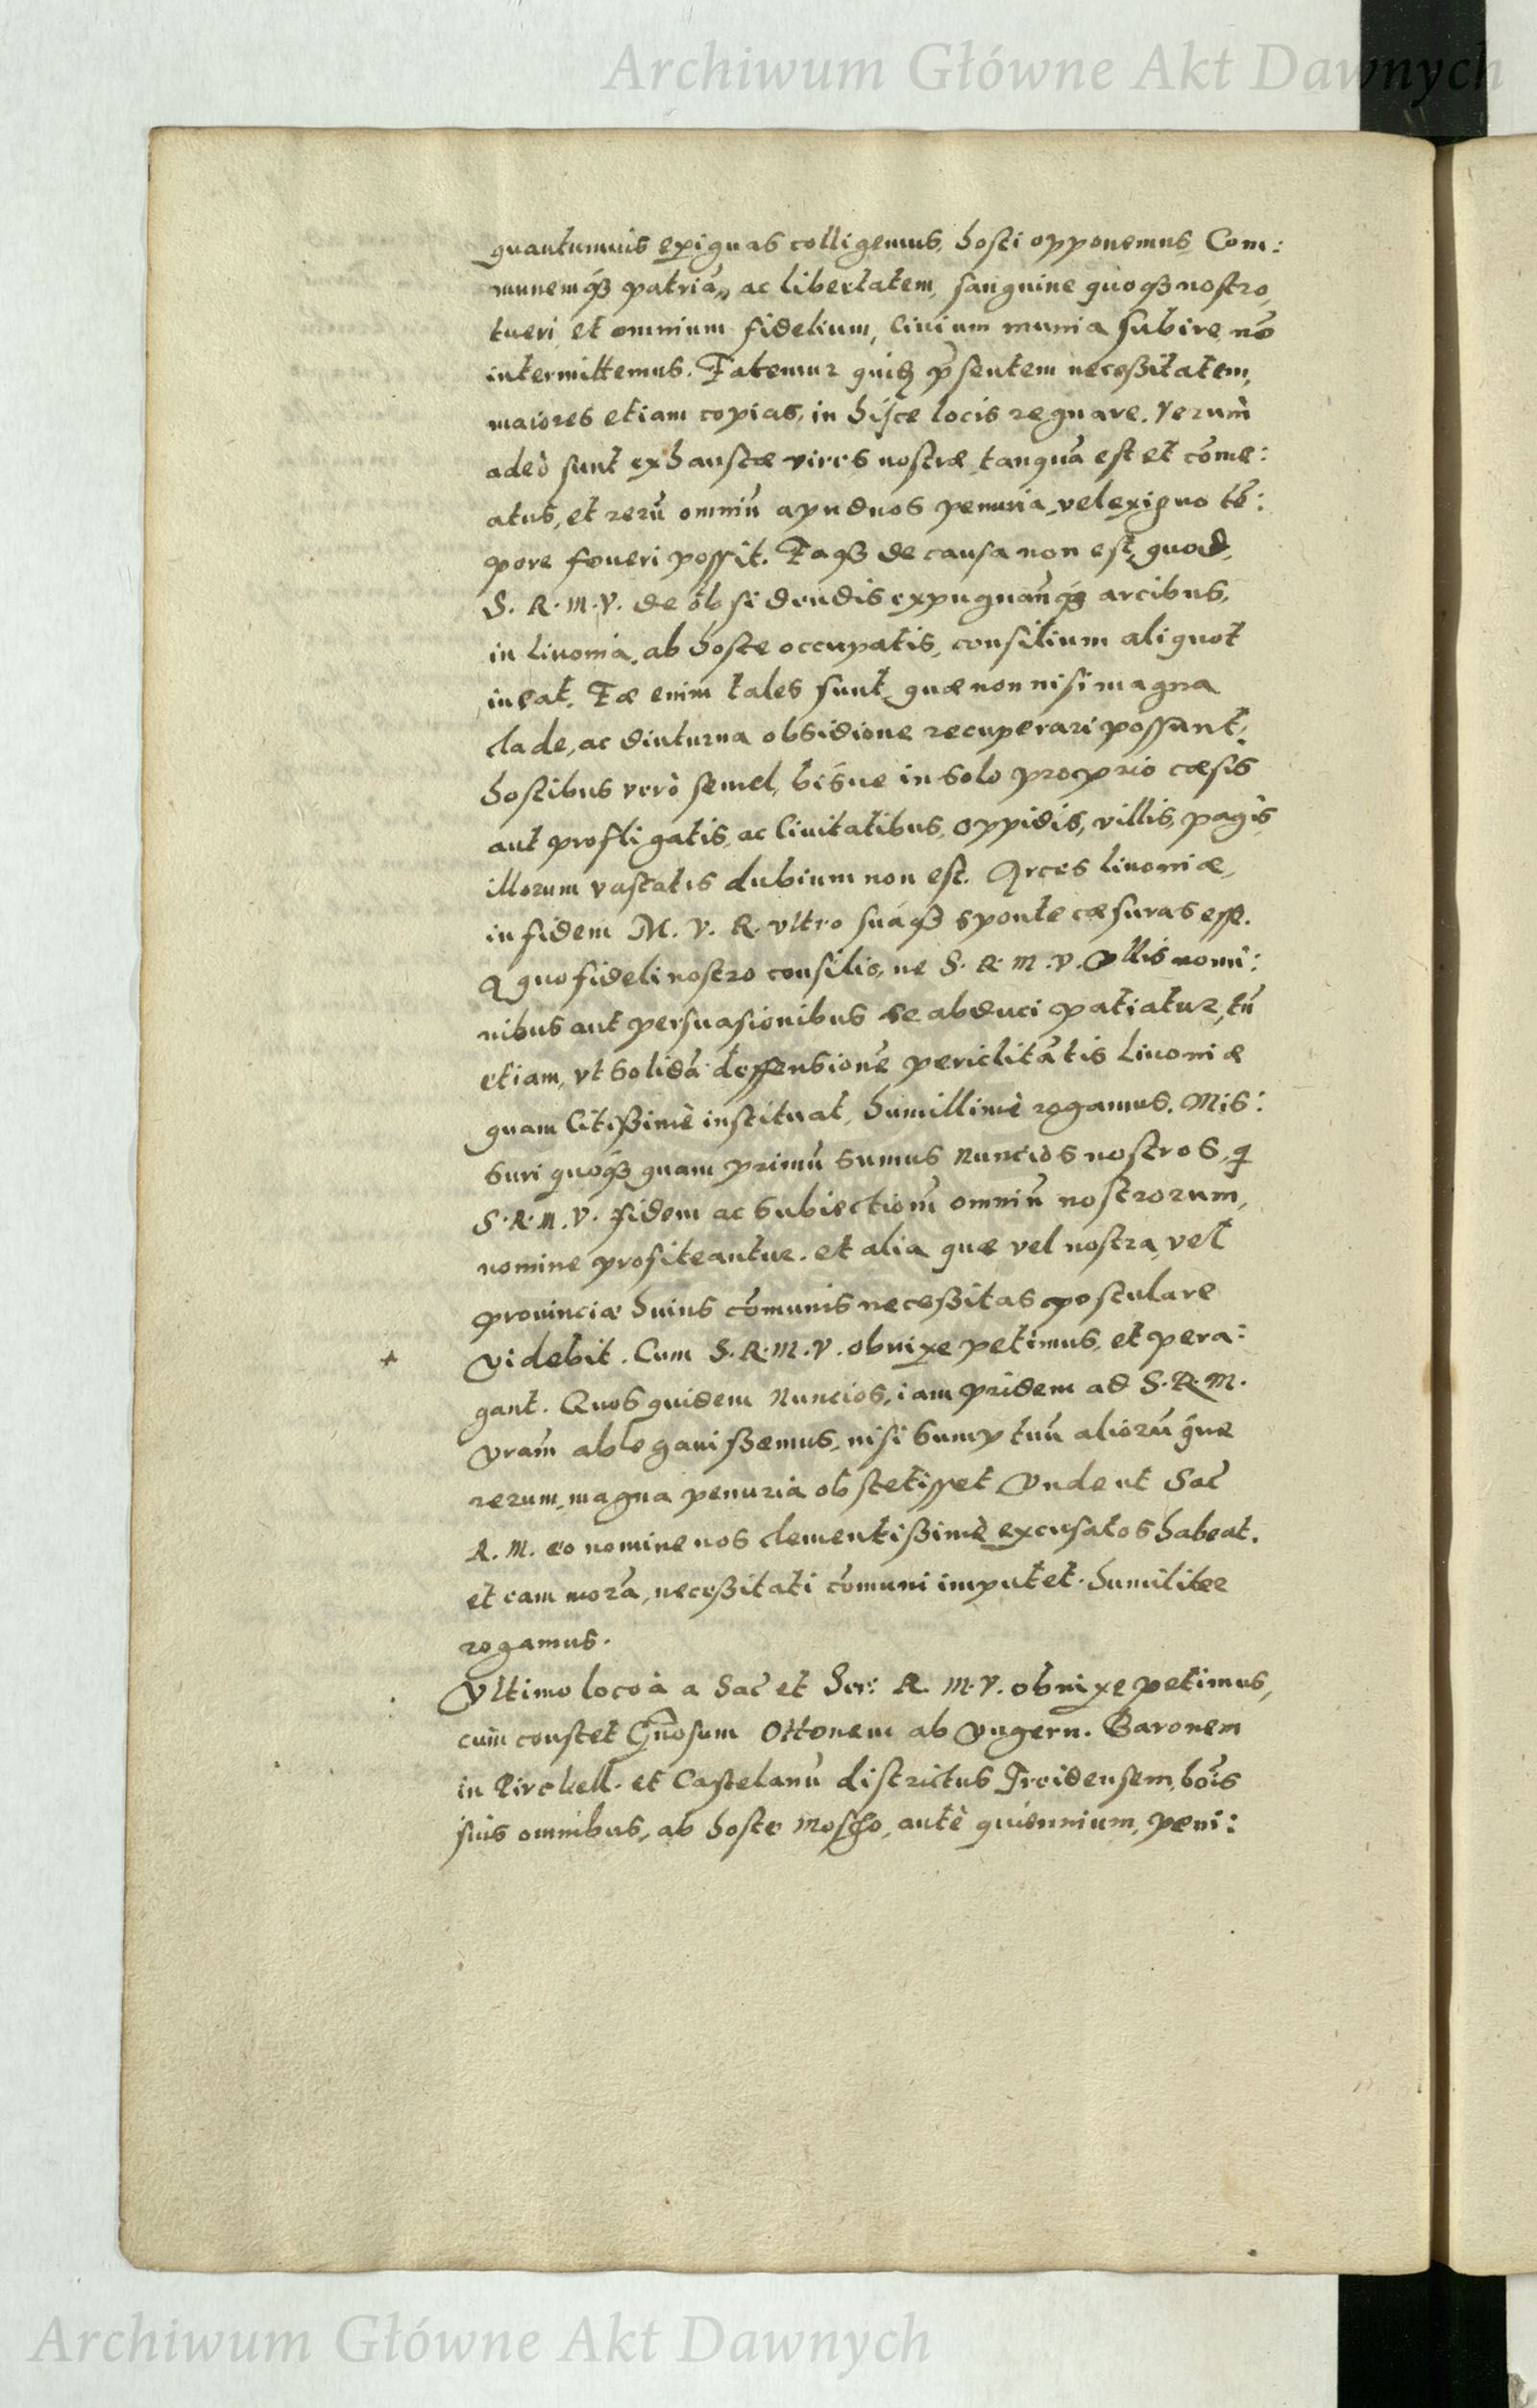 Archiwum Główne Akt Dawnych
quantumuis exiguas colligemus, hosti opponemus, Com:
munemq́ꝫ patriã, ac libertatem, sanguine quoqꝫ nostro,
tueri, et omnium fidelium, Ciuium munia subire, nõ
intermittemus. Fatemur quidẽ p̃sentem neceßitatem,
maiores etiam copias, in hisce locis regnare. Verum̀
adeò sunt exhaustæ vires nostræ, tanquã est et cõme:
atus, et rerũ omniũ apud nos penuria, vel exiguo tẽ:
pore foueri possit. Eaqꝫ de causa non est, quod,
S. R. M. V. de obsidendis expugnan̄qꝫ arcibus,
in Liuonia, ab hoste occupatis, consilium aliquot
ineat. Eæ enim tales sunt, quæ non nisi magna
clade, ac diuturna obsidione recuperari possunt,
hostibus verò semel, bisue in solo proprio cæsis
aut profligatis, ac Ciuitatibus, oppidis, villis, pagis
illorum vastatis dubium non est. Arces Liuoniæ,
in fidem M. V. R. vltro suáqꝫ sponte cæsuras esse.
A quo fideli nostro consilio, ne S. R. M. V. Vllis nomi:
nibus aut persuasionibus se abduci patiatur, tũ
etiam, vt solidã deffensionẽ periclitãtis Liuoniæ
quam Citißimè instituat, humillimè rogamus. Mis:
suri quoq́ꝫ quam primũ sumus Nuncios nostros, q̃
S. R. M. V. fidem ac subiectionẽ omniũ nostrorum,
nomine profiteantur. et alia quæ vel nostra, vel
prouinciæ huius cõmunis neceßitas postulare
+ Videbit. Cum S. R. M. V. obnixe petimus, et pera:
gant. Quos quidem Nuncios, iam pridem ad S. R. M.
Vram̃ ablegauißemus, nisi sumptuũ aliorũque
rerum, magna penuria obstetisset Vnde ut Sac̃
R. M. eo nomine nos clementißimè excusatos habeat.
et eam morã, neceßitati cõmuni imputet. humiliter
rogamus.
Vltimo loco à a Sac̃ et Ser: R. M. V. obnixe petimus,
cum̀ constet G̃nosum Ottonem ab Vngern. Baronem
in Pirckell. et Castelanũ districtus Treidensem, bõis
suis omnibus, ab hoste Moscho, antè quiennium, peni:
Archiwum Główne Akt Dawnych